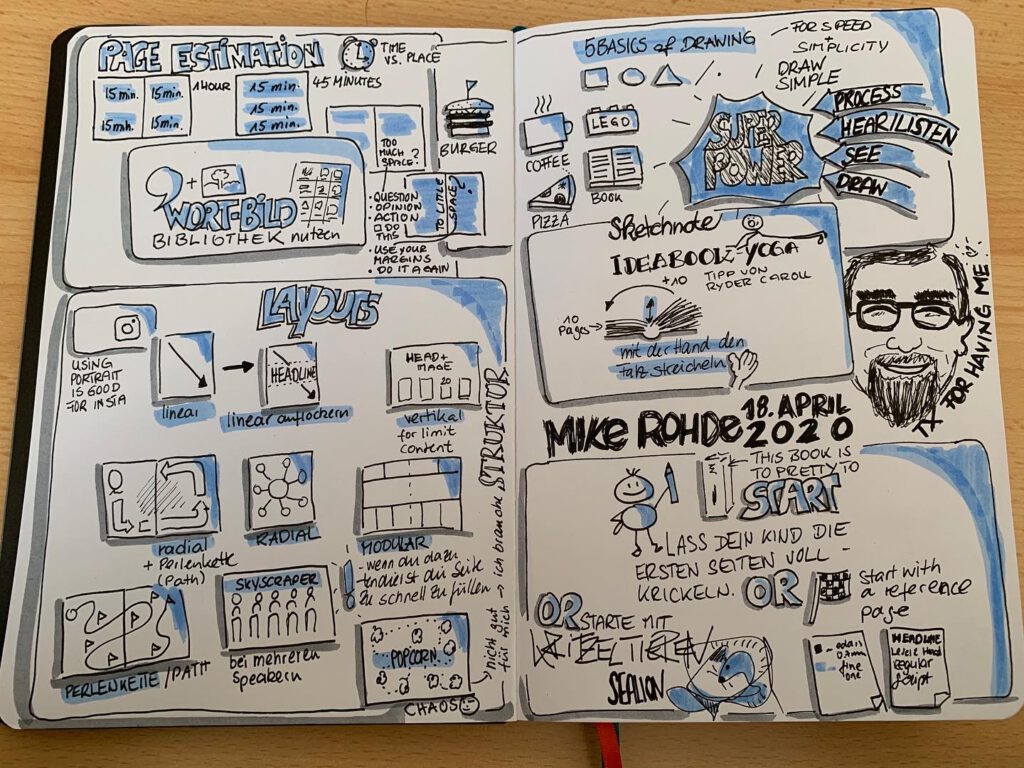 PAGE ESTIMATION
TIME
VS. PLACE
15 min. 15 min.
15 min. 15 min.
1 HOUR
15 min.
15 min.
15 min.
45 MINUTES
TOO
MUCH
SPACE?
BURGER
TO LITTLE
SPACE?
• QUESTION
• OPINION
• ACTION
DO
THIS
• USE YOUR
MARGINS
• DO IT AGAIN
+
WORT-BILD
BIBLIOTHEK nutzen
LAYOUTS
USING
PORTRAIT
IS GOOD
FOR INSTA
linear
HEADLINE
linear auflockern
HEAD +
IMAGE
20
vertikal
for limit
content
radial
+ Perlenkette
(Path)
RADIAL
MODULAR
- wenn du dazu
tendierst die Seite
zu schnell zu füllen
PERLENKETTE/PATH
SKYSCRAPER
bei mehreren
Speakern
POPCORN
CHAOS
nicht gut
für mich → ich brauche STRUKTUR
5 BASICS of DRAWING
FOR SPEED
+
SIMPLICITY
DRAW
SIMPLE
COFFEE
LEGO
PIZZA
BOOK
SUPER
POWER
PROCESS
HEAR/LISTEN
SEE
DRAW
Sketchnote
IDEABOOK-YOGA
+10
TIPP VON
RYDER CAROLL
10
Pages
mit der Hand den
Falz streicheln
FOR HAVING ME
MIKE ROHDE
18. APRIL
2020
THIS BOOK IS
TO PRETTY TO
START
LASS DEIN KIND DIE
ERSTEN SEITEN VOLL-
KRICKELN.
OR
Start with
a reference
page
OR STARTE MIT
SEALION
fine
one
HEADLINE
Regular
Script